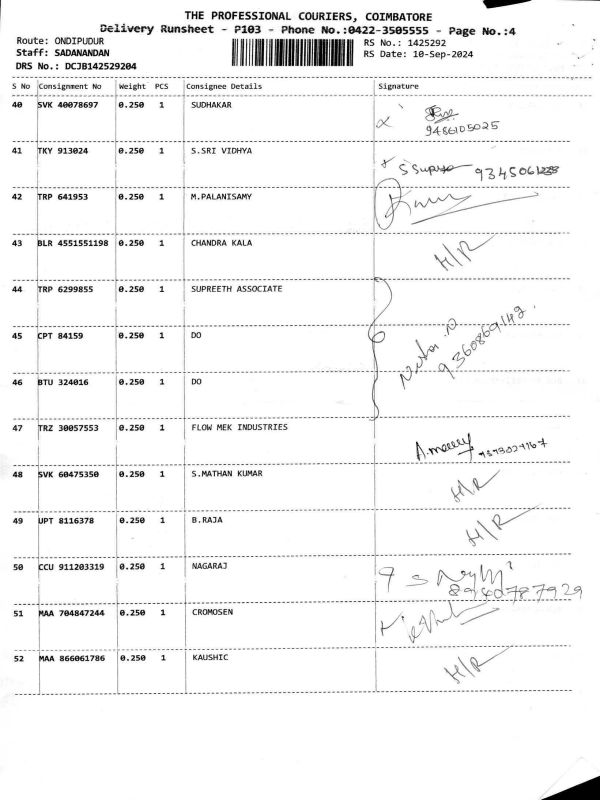 THE PROFESSIONAL COURIERS, COIMBATORE
Delivery Runsheet - P103 - Phone No.:0422-3505555 - Page No.:4
Route: ONDIPUDUR RS No.: 1425292
Staff: SADANANDAN RS Date: 10-Sep-2024
DRS No.: DCJB142529204
S No Consignment No Weight PCS Consignee Details Signature
40 SVK 40078697 0.250 1 SUDHAKAR
9486105025
41 TKY 913024 0.250 1 S.SRI VIDHYA
42 TRP 641953 0.250 1 M.PALANISAMY
43 BLR 4551551198 0.250 1 CHANDRA KALA H/R
44 TRP 6299855 0.250 1 SUPREETH ASSOCIATE
45 CPT 84159 0.250 1 DO
46 BTU 324016 0.250 1 DO
47 TRZ 30057553 0.250 1 FLOW MEK INDUSTRIES
48 SVK 60475350 0.250 1 S.MATHAN KUMAR H/R
49 UPT 8116378 0.250 1 B.RAJA H/R
50 CCU 911203319 0.250 1 NAGARAJ
8940787929
51 MAA 704847244 0.250 1 CROMOSEN
52 MAA 866061786 0.250 1 KAUSHIC H/R